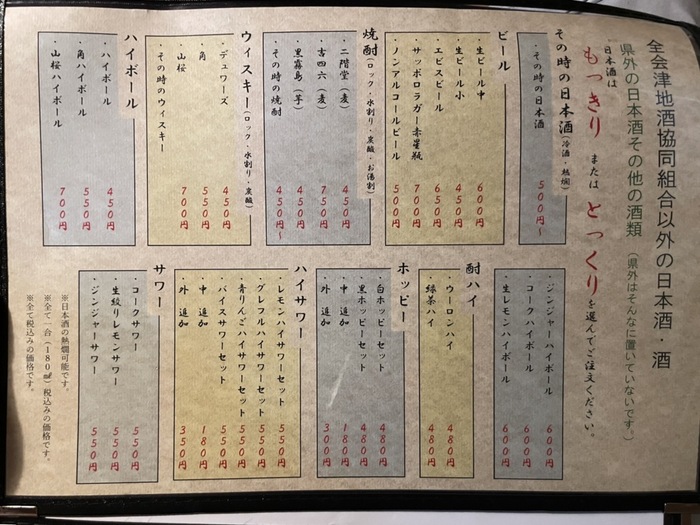 全会津地酒協同組合以外の日本酒・酒
県外の日本酒その他の酒類(県外はそんなに置いていないです。)
日本酒は
もっきり または とっくり を選んでご注文ください。
その時の日本酒(冷酒・熱燗)
・その時の日本酒 500円~
ビール
・生ビール中 600円
・生ビール小 450円
・エビスビール 650円
・サッポロラガー赤星瓶 700円
・ノンアルコールビール 500円
焼酎(ロック・水割り・炭酸・お湯割)
・二階堂(麦) 450円
・吉四六(麦) 750円
・黒霧島(芋) 450円
・その時の焼酎 450円~
ウィスキー(ロック・水割り・炭酸)
・デュワーズ 450円
・角 550円
・山桜 700円
・その時のウィスキー
ハイボール
・ハイボール 450円
・角ハイボール 550円
・山桜ハイボール 700円
・ジンジャーハイボール 600円
・コークハイボール 600円
・生レモンハイボール 600円
酎ハイ
・ウーロンハイ 480円
・緑茶ハイ 480円
ホッピー
・白ホッピーセット 480円
・黒ホッピーセット 480円
・中 追加 180円
・外 追加 300円
ハイサワー
・レモンハイサワーセット 550円
・グレフルハイサワーセット 550円
・青りんごハイサワーセット 550円
・バイスサワーセット 550円
・中 追加 180円
・外 追加 350円
サワー
・コークサワー 550円
・生絞りレモンサワー 550円
・ジンジャーサワー 550円
※日本酒の熱燗可能です。
※全て一合(180㎖)税込みの価格です。
※全て税込みの価格です。